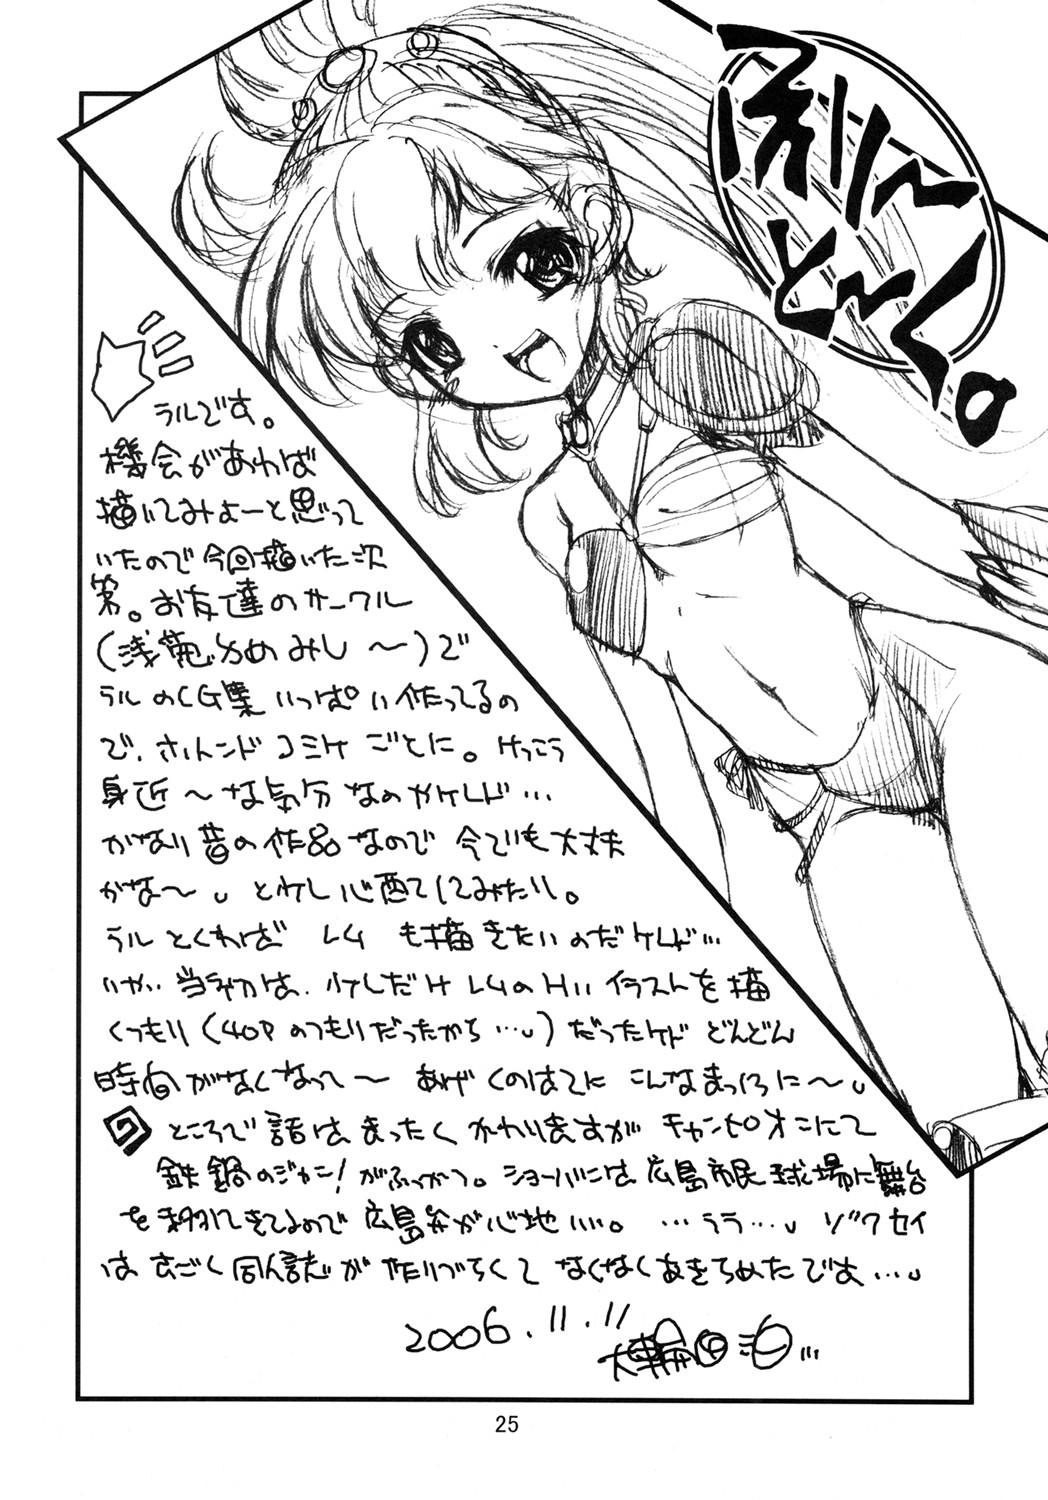 ふりーとーく。
ラルです。
機会があれば
描いてみよーと思って
いたので今回描いた次
第。お友達のサークル
(浅葱かめみし〜)で
ラルのCG集いっぱい作ってるの
で、ホトンドコミケごとに。けっこう
身近〜な気分なのやけレド…
かなり昔の作品なので今でも大丈夫
かな〜。と少し心配してみたり。
ラルとくれば L4 も描きたいのだケレド…
いや、当初は、少しだけL4のHいイラストを描
くつもり(40Pのつもりだったから…。)だったケド どんどん
時間がなくなって〜 あげくのはてに こんなまっくろに〜。
ところで話はまったくかわりますが チャンピオンにて
鉄鍋のジャン!がふっかつ。ショーバンは広島市民球場に舞台
を移してきてるので広島弁が心地いい。…うう…。ゾクセイ
はすごく同人誌が作りづらくて なくなくあきらめたです…。
2006.11.11
25